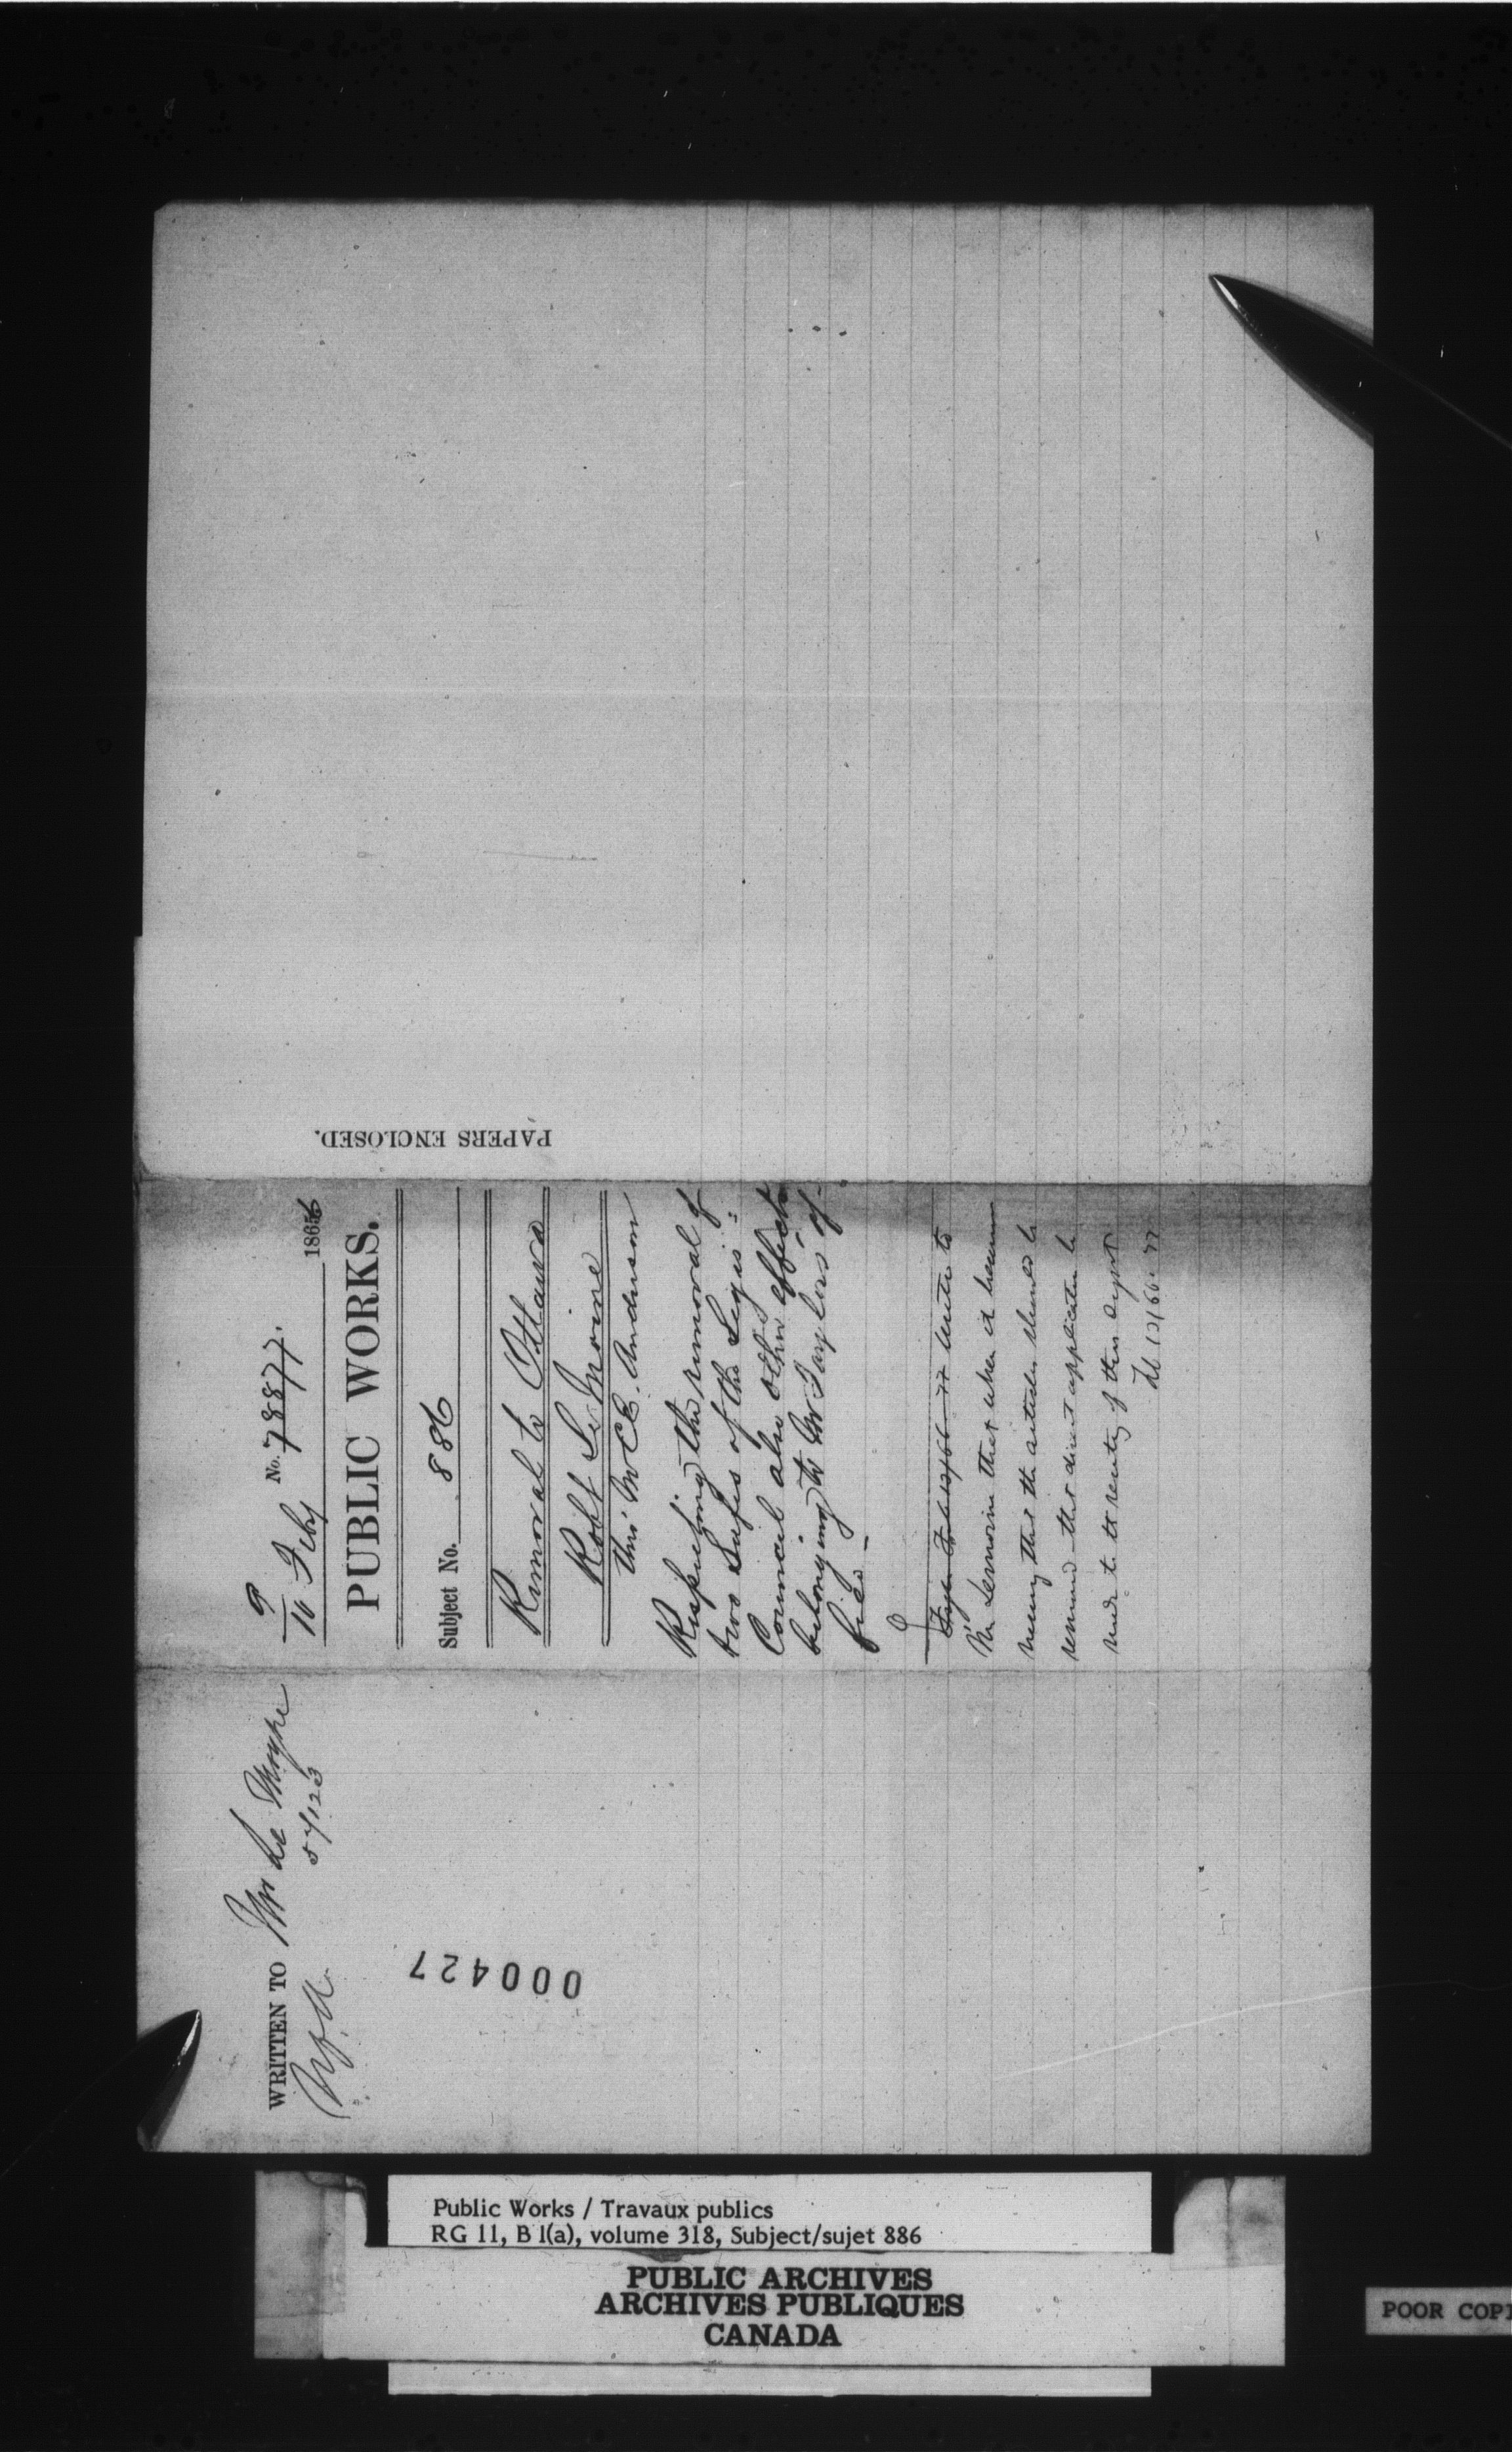 WRITTEN TO Mr Le Moyne
57123
000427
9
10 Feby No. 78877. 1866
PUBLIC WORKS.
Subject No. 886
Removal to Ottawa
Robt Le Moine
thro' Mr C E. Anderson
Respecting the removal of
two Safes of the Legis=
Council also other effects
belonging to Mr Taylors of-
fice -
Feb 12/66 Write to
Mr Lemoine that when it becomes
necessy that the articles should be
removed that direct application be
made to the of this Depart
Feb 12/66
PAPERS ENCLOSED.
Public Works / Travaux publics
RG 11, B 1(a), volume 318, Subject/sujet 886
PUBLIC ARCHIVES
ARCHIVES PUBLIQUES
CANADA
POOR COPI